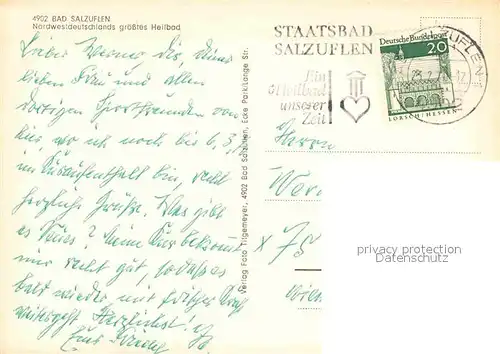 4902 BAD SALZUFLEN
Nordwestdeutschlands größtes Heilbad
Lieber Werner, Dir, Deiner
lieben Frau und allen
dortigen Sportfreunden von
hier, wo ich noch bis 6.3.
im Kuraufenthalt bin, recht
herzliche Grüße. Was gibt
es Neues? Meine Kur bekommt
mir recht gut, so daß es
bald wieder mit frischer Kraft
weitergeht. Herzlichst!
Verlag Foto Tilgemeyer, 4902 Bad Salzuflen, Ecke Park/Lange Str.
STAATSBAD
SALZUFLEN
Ein
Heilbad
unserer
Zeit
Deutsche Bundespost
20
LORSCH/HESSEN
Herrn
75
privacy protection
Datenschutz